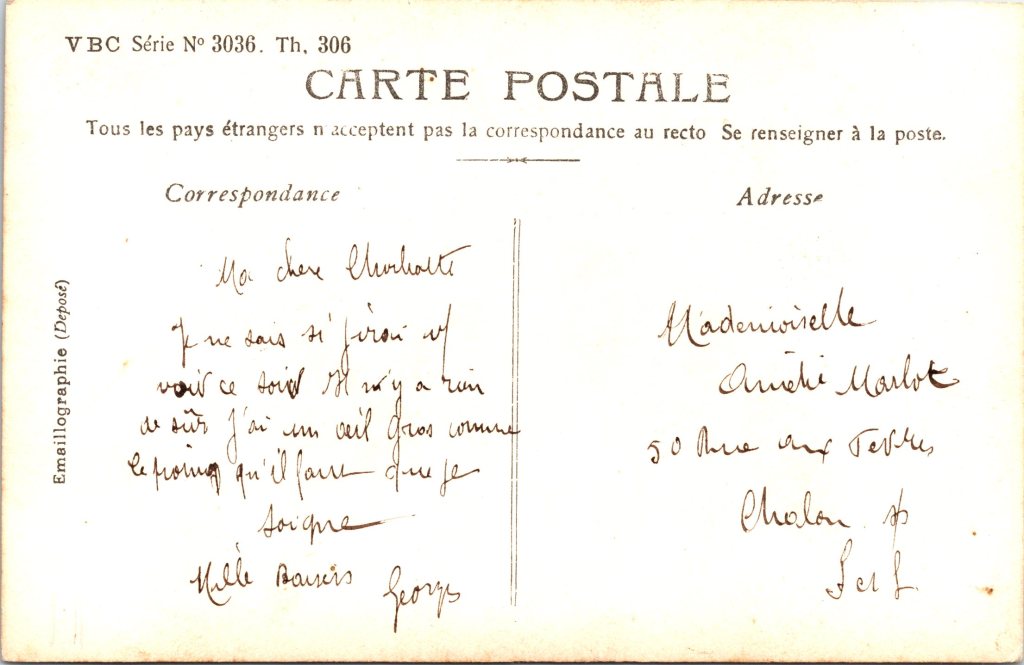 VBC Série Nº 3036. Th. 306
CARTE POSTALE
Tous les pays étrangers n acceptent pas la correspondance au recto Se renseigner à la poste.
Correspondance
Adresse
Emaillographie (Deposé)
Ma chere
Je ne sais si j'irai
voir ce soir Il n'y a rien
de sûr J'ai un œil gros comme
le poing qu'il faut que je
soigne
Mille Baisers Georges
Mademoiselle
Amélie Marlot
50 Rue aux Fevres
Chalon s/s
S et L